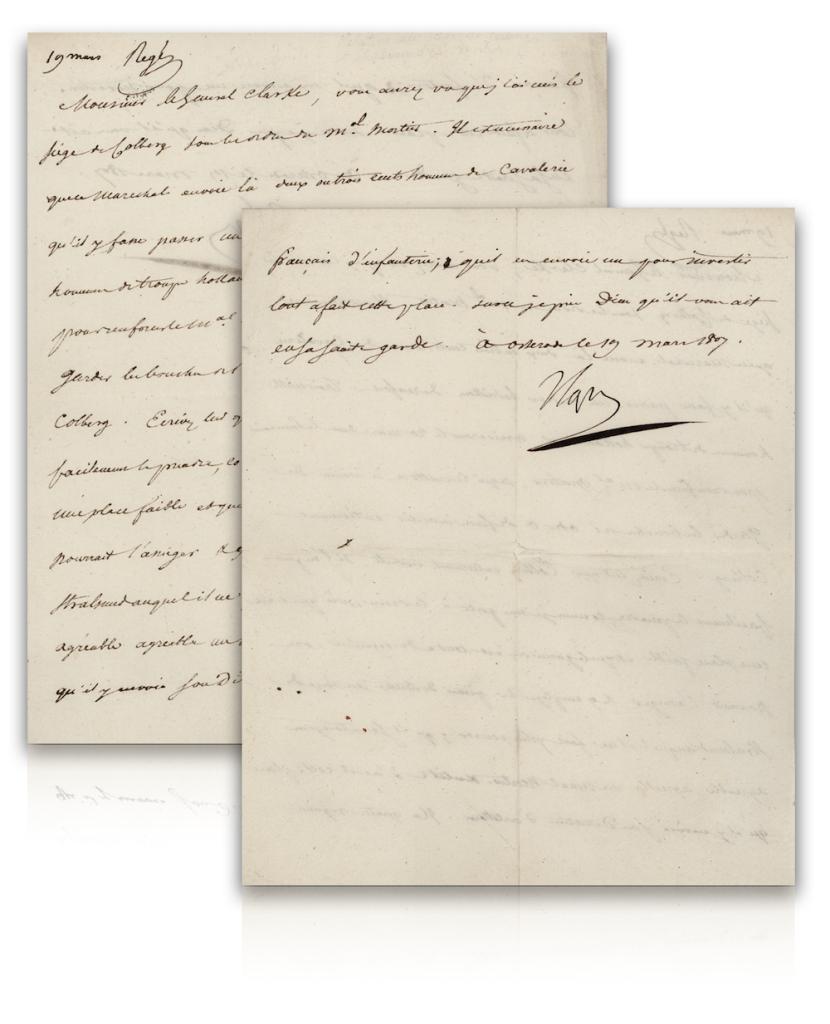 19 mars
Monsieur le General Clarke, vous aurez vu que j'ai mis le
siège de Colberg sous les ordres du Mal Mortier. Il est necessaire
que ce Marechal envoie là deux ou trois cents hommes de Cavalerie
qu'il y fasse passer un
hommes de troupe hollan
pour renforcer le Mal
garder les bouches de l
Colberg. Ecrivez lui q
facilement le prendre, co
une place faible et que
pourrait l'assieger
Stralsund auquel il ne
agréable agréable au
qu'il y envoie son
français d'infanterie; qu'il en envoie un pour investir
tout afait cette place. sur ce je prie Dieu qu'il vous ait
en sa sainte garde. à Osterode le 19 mars 1807.